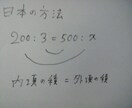 日本の方法
200:3=500:x
内項の積=外項の積